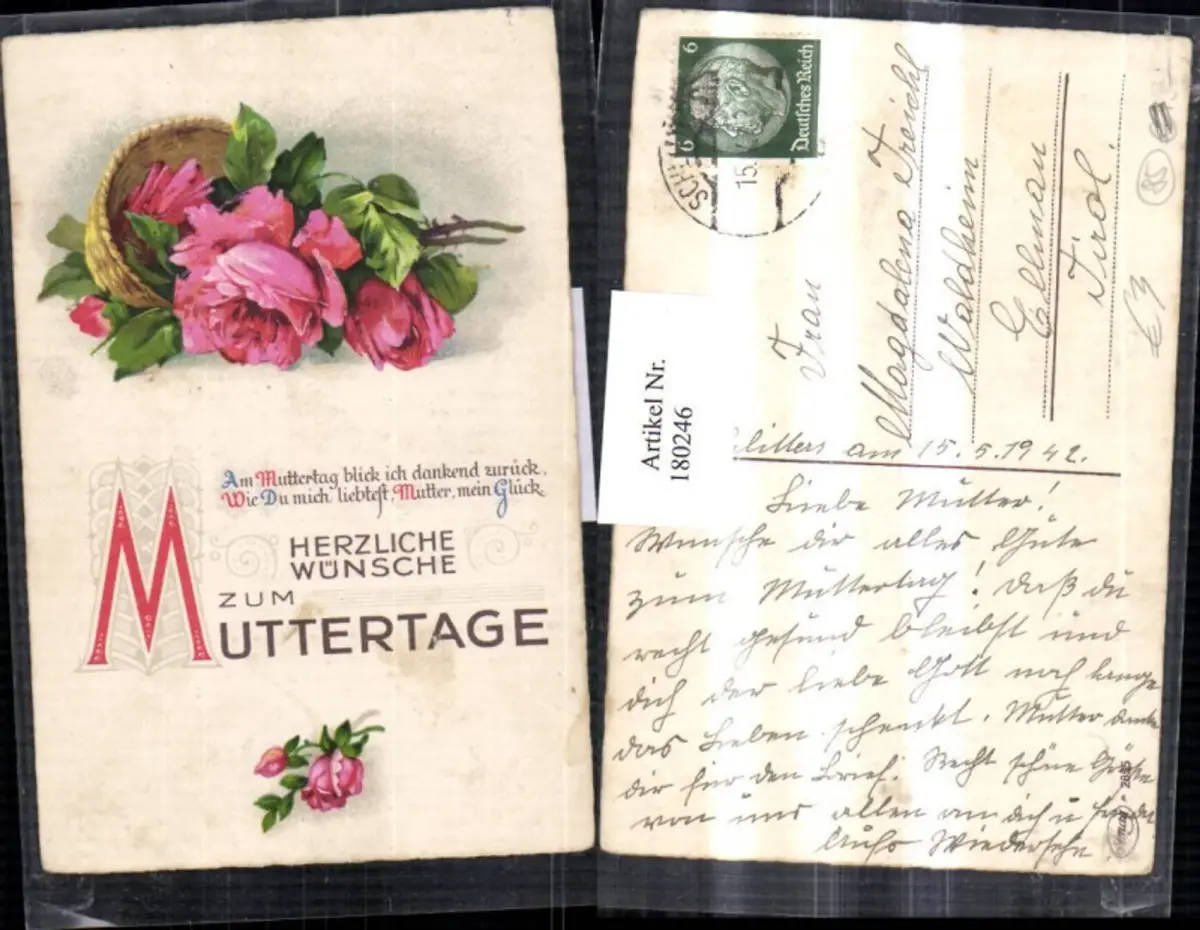 Am Muttertag blick ich dankend zurück.
Wie Du mich liebtest, Mutter, mein Glück
HERZLICHE
WÜNSCHE
ZUM
MUTTERTAGE
6 6
Deutsches Reich
SCH
15.
Frau
Magdalena Treichl
Waldheim
Ellmau
Tirol.
85
€3
Artikel Nr.
180246
litters am 15.5.1942.
Liebe Mutter!
Wünsche dir alles Gute
zum Muttertag! Daß du
recht gesund bleibst und
dich der liebe Gott noch lange
das Leben schenkt. Mutter danke
dir für den Brief. Recht schöne Grüße
von uns allen an dich u
Aufs Wiedersehn
Amag 2835